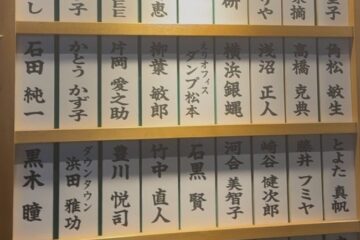 子
摘
りや
研
恵
EE
子
し
角松 敏生
高橋 克典
浅沼 正人
横浜銀蝿
オフィス
ダンプ松本
柳葉 敏郎
片岡 愛之助
かとう かず子
石田 純一
とよた 真帆
藤井 フミヤ
崎谷 健次郎
河合 美智子
石黒 賢
竹中 直人
豊川 悦司
ダウンタウン
浜田 雅功
黒木 瞳